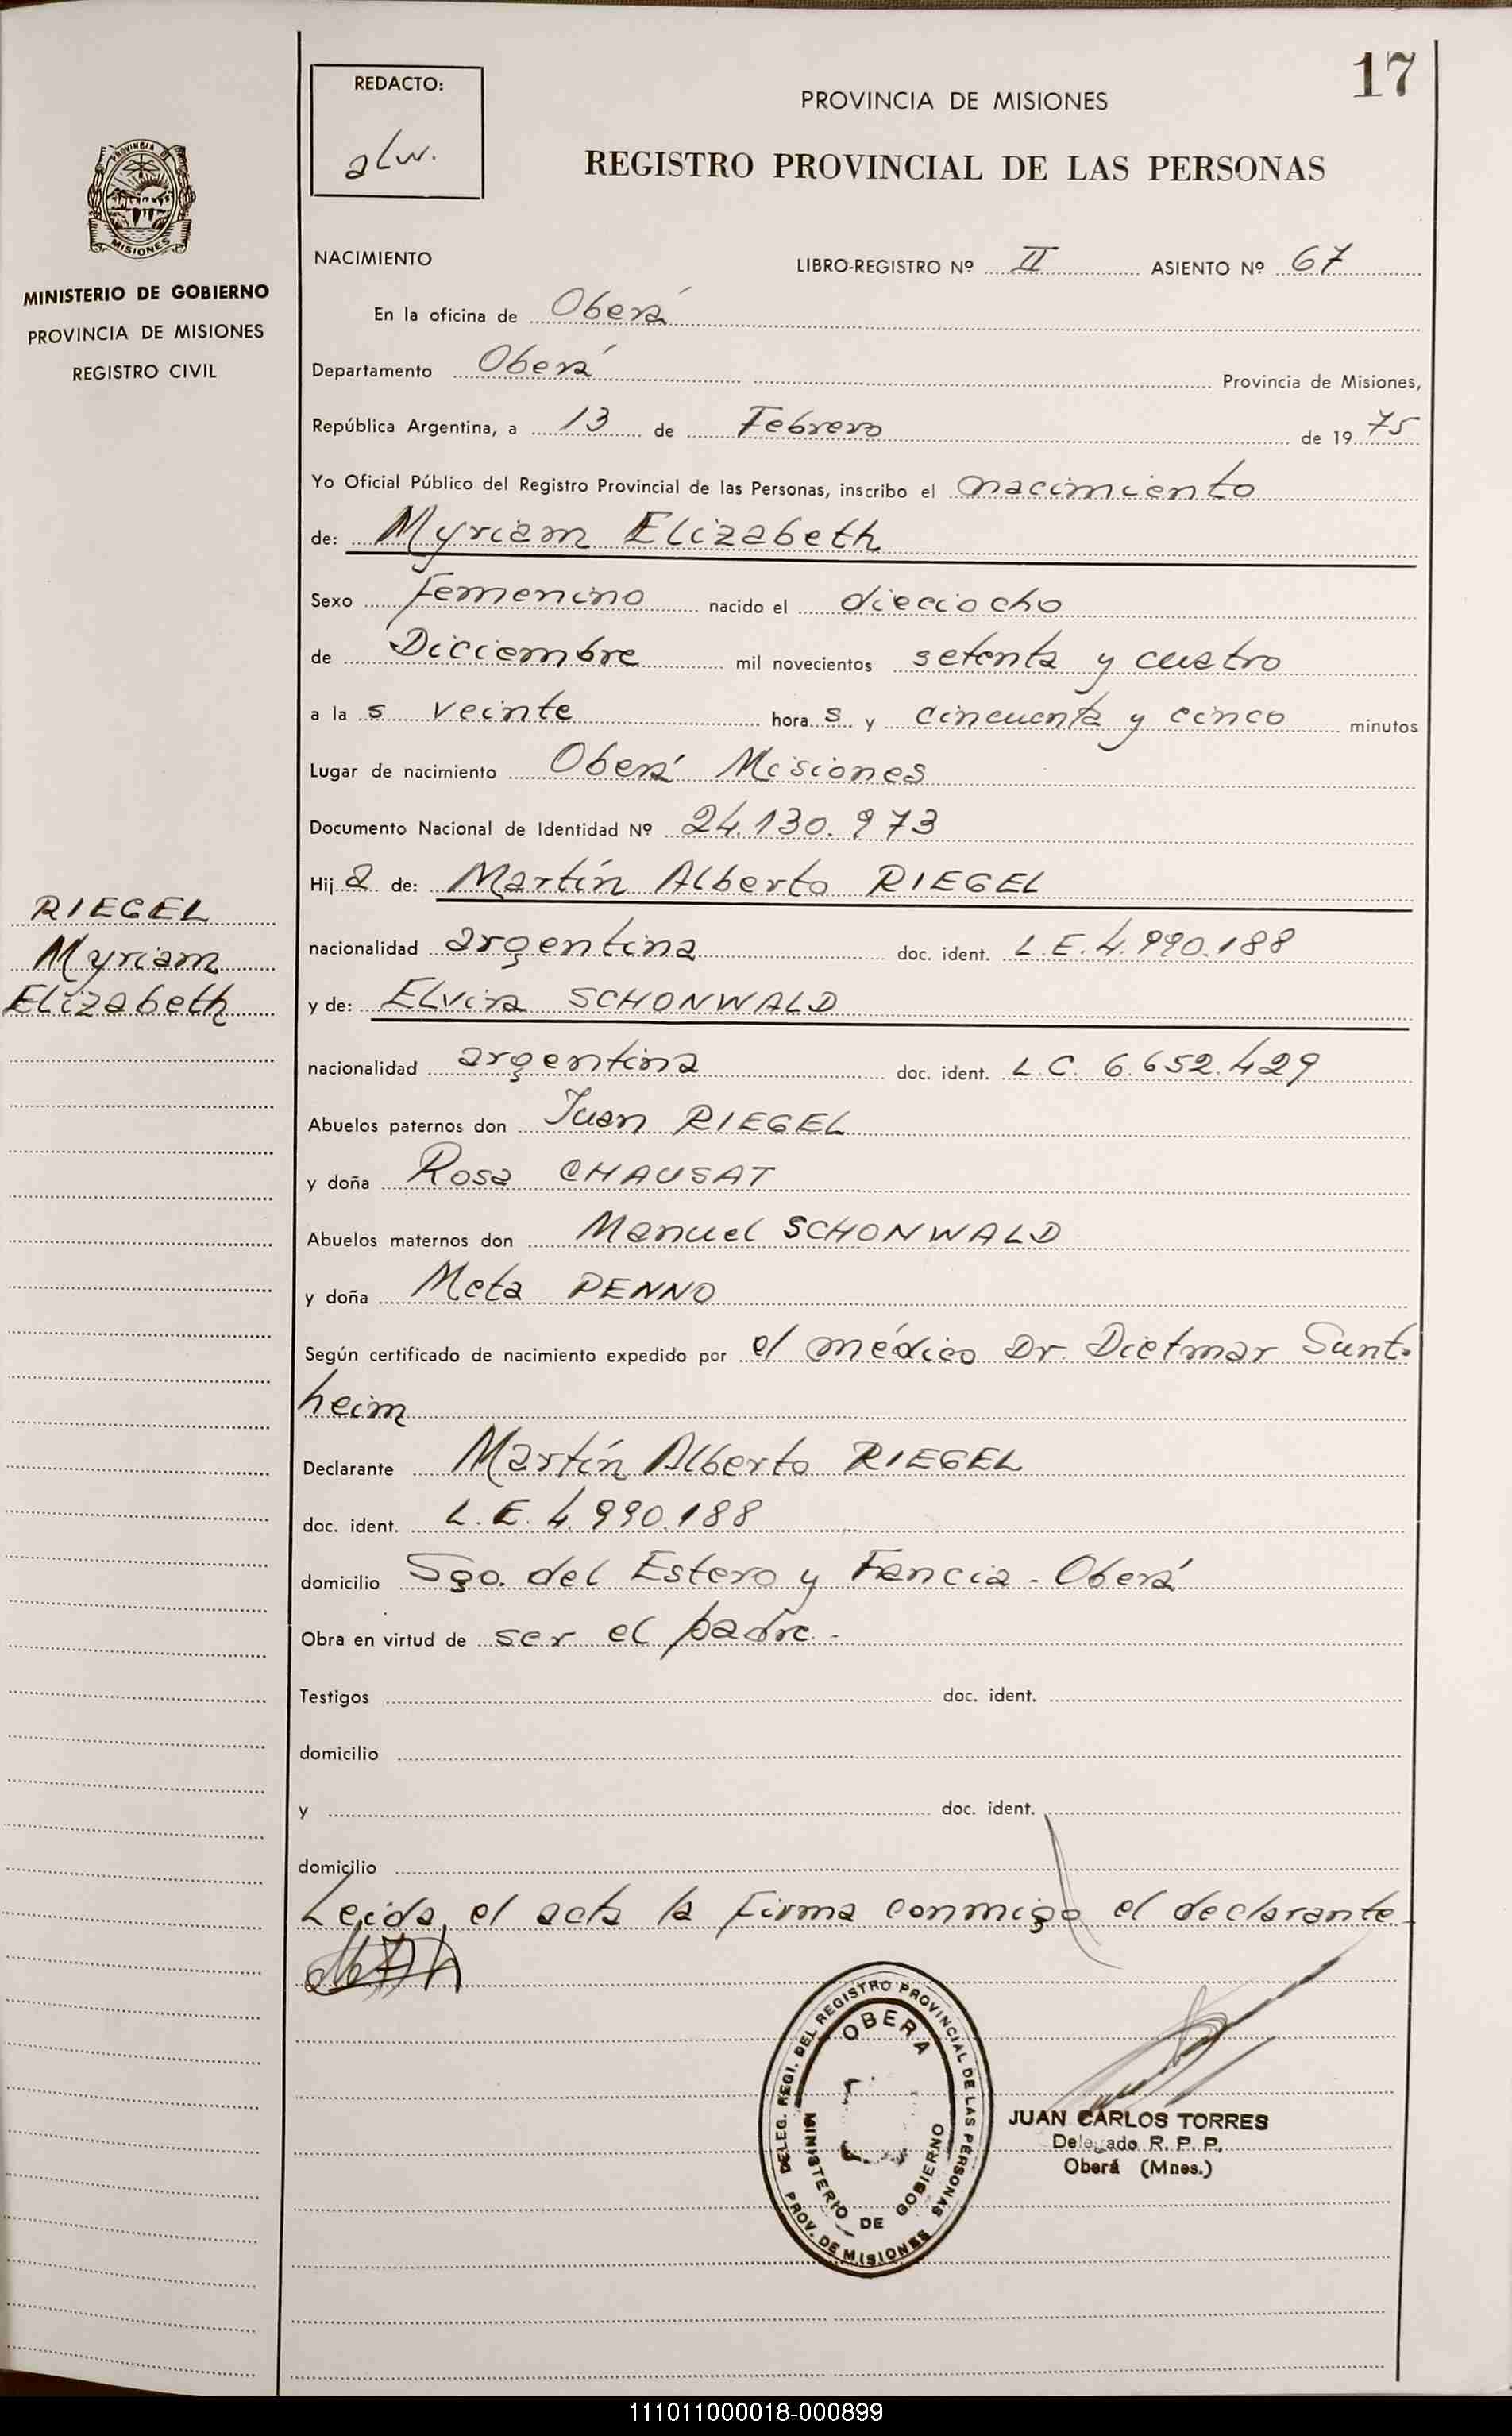 17
REDACTO:
alw.
PROVINCIA DE MISIONES
REGISTRO PROVINCIAL DE LAS PERSONAS
PROVINCIA
MISIONES
MINISTERIO DE GOBIERNO
PROVINCIA DE MISIONES
REGISTRO CIVIL
NACIMIENTO LIBRO-REGISTRO Nº II ASIENTO Nº 67
En la oficina de Oberá
Departamento Oberá Provincia de Misiones,
República Argentina, a 13 de Febrero de 1975
Yo Oficial Público del Registro Provincial de las Personas, inscribo el nacimiento
de: Myriam Elizabeth
Sexo Femenino nacido el dieciocho
de Diciembre mil novecientos setenta y cuatro
a las veinte horas y cincuenta y cinco minutos
Lugar de nacimiento Oberá Misiones
Documento Nacional de Identidad Nº 24.130.973
Hija de: Martín Alberto RIEGEL
nacionalidad argentina doc. ident. L.E. 4.990.188
y de: Elvira SCHONWALD
nacionalidad argentina doc. ident. L.C. 6.652.429
Abuelos paternos don Juan RIEGEL
y doña Rosa CHAUSAT
Abuelos maternos don Manuel SCHONWALD
y doña Meta PENNO
Según certificado de nacimiento expedido por el médico Dr. Dietmar Sunt-
heim
Declarante Martín Alberto RIEGEL
doc. ident. L.E. 4.990.188
domicilio Sgo. del Estero y Fancia - Oberá
Obra en virtud de ser el padre.-
Testigos doc. ident.
domicilio
y doc. ident.
domicilio
Leida, el acta la firma conmigo el declarante
RIEGEL
Myriam
Elizabeth
DELEG. REGI. DEL REGISTRO PROVINCIAL DE LAS PERSONAS
PROV. DE MISIONES
OBERA
MINISTERIO DE GOBIERNO
JUAN CARLOS TORRES
Delegado R. P. P.
Oberá (Mnes.)
111011000018-000899